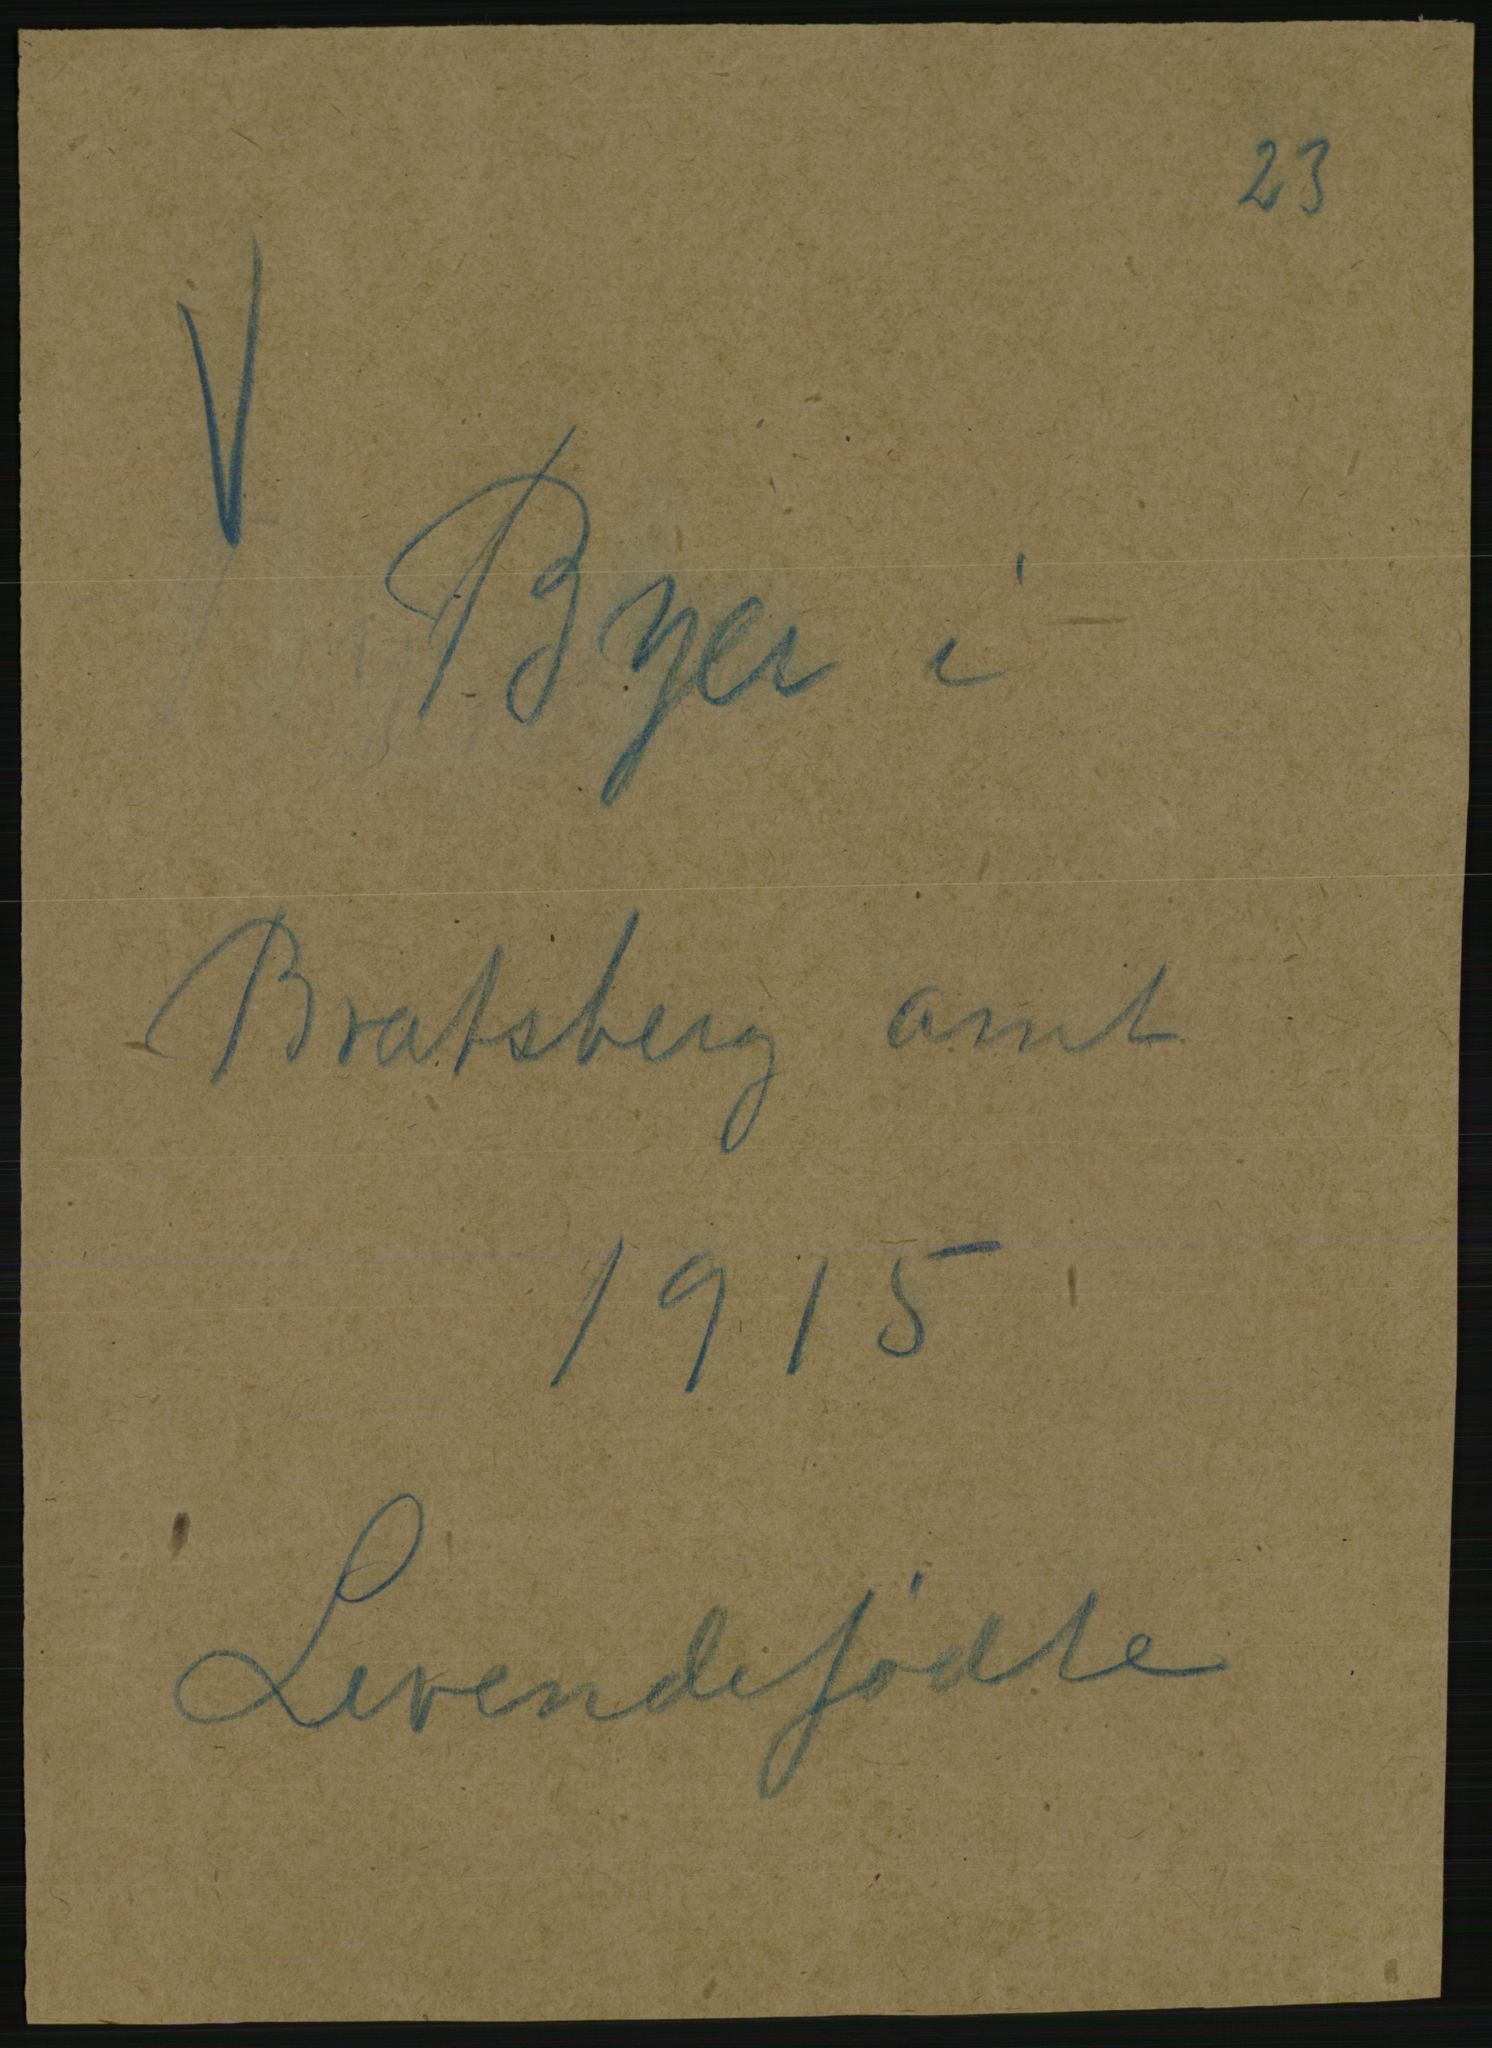 23
V
Byer i
Bratsberg amt
1915
Levendefödte